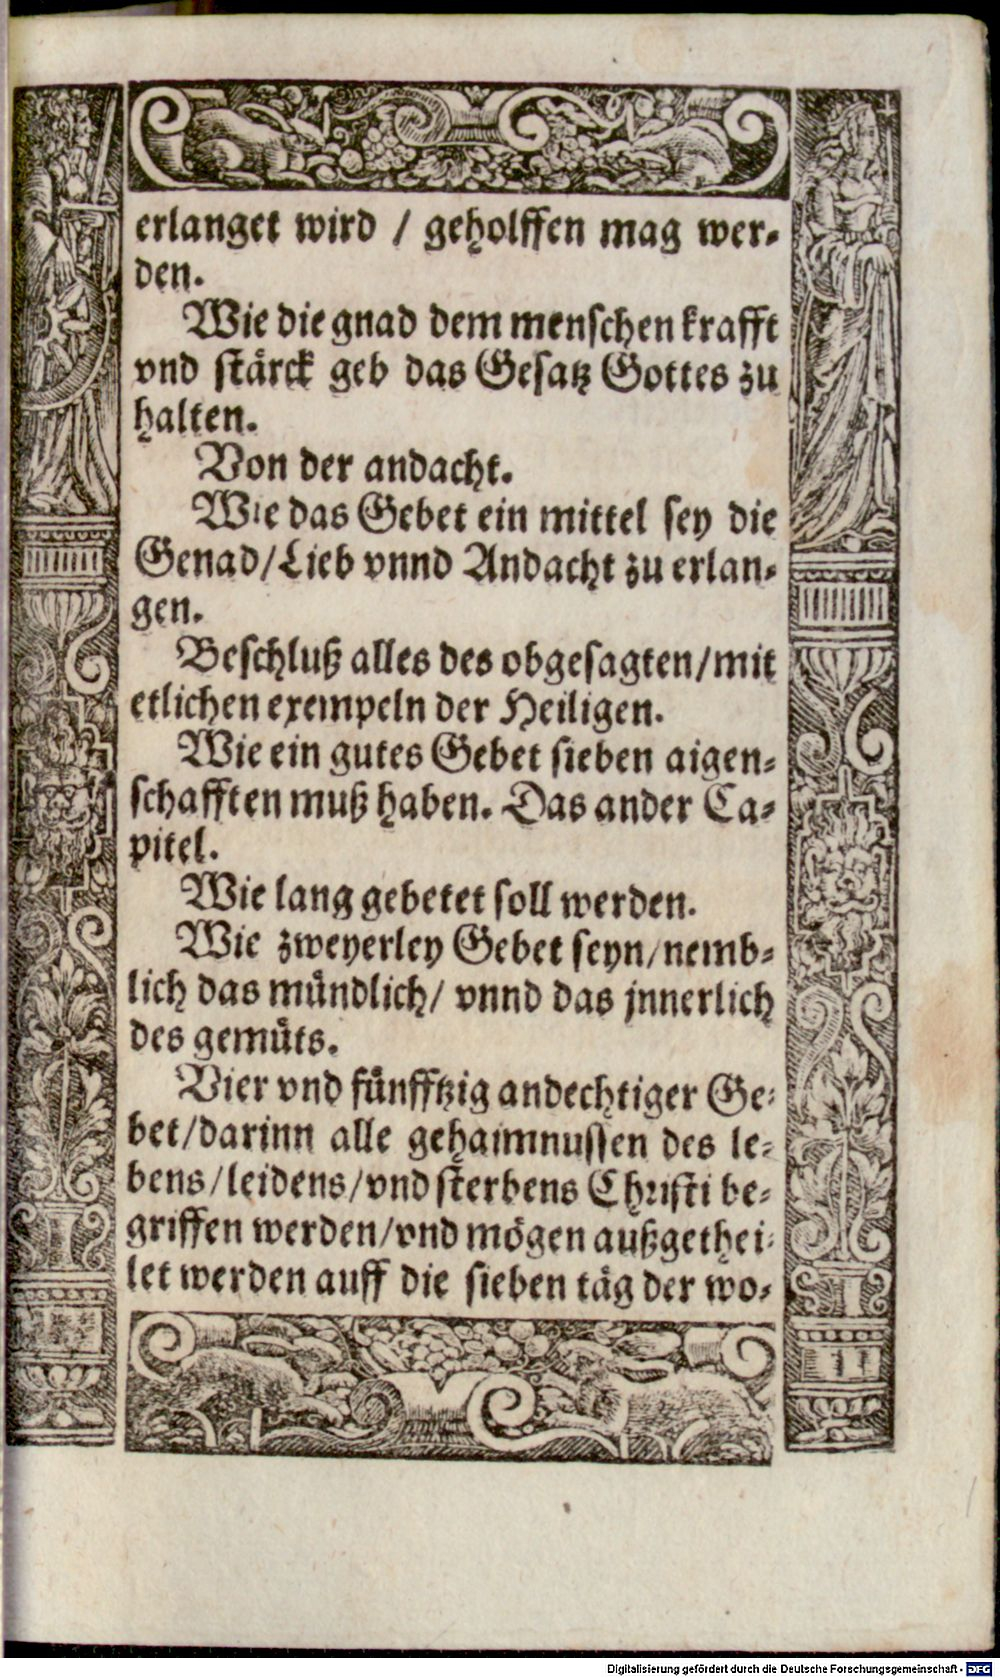 erlanget wird / geholffen mag wer-
den.
Wie die gnad dem menschen krafft
vnd stärck geb das Gesatz Gottes zu
halten.
Von der andacht.
Wie das Gebet ein mittel sey die
Genad/Lieb vnnd Andacht zu erlan-
gen.
Beschluß alles des obgesagten/mit
etlichen exempeln der Heiligen.
Wie ein gutes Gebet sieben aigen-
schafften muß haben. Das ander Ca-
pitel.
Wie lang gebetet soll werden.
Wie zweyerley Gebet seyn/nemb-
lich das mündlich/ vnnd das jnnerlich
des gemüts.
Vier vnd fünfftzig andechtiger Ge-
bet/darinn alle gehaimnussen des le-
bens/leidens/vnd sterbens Christi be-
griffen werden/vnd mögen außgethei-
let werden auff die sieben täg der wo-
Digitalisierung gefördert durch die Deutsche Forschungsgemeinschaft - DFG